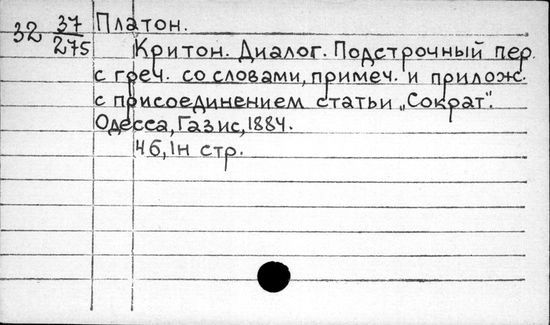 32 37/275 Платон.
Критон. Диалог. Подстрочный пер.
с греч. со словами, примеч. и прилож.
с присоединением статьи „Сократ".
Одесса, Газис, 1884.
46, 1н стр.